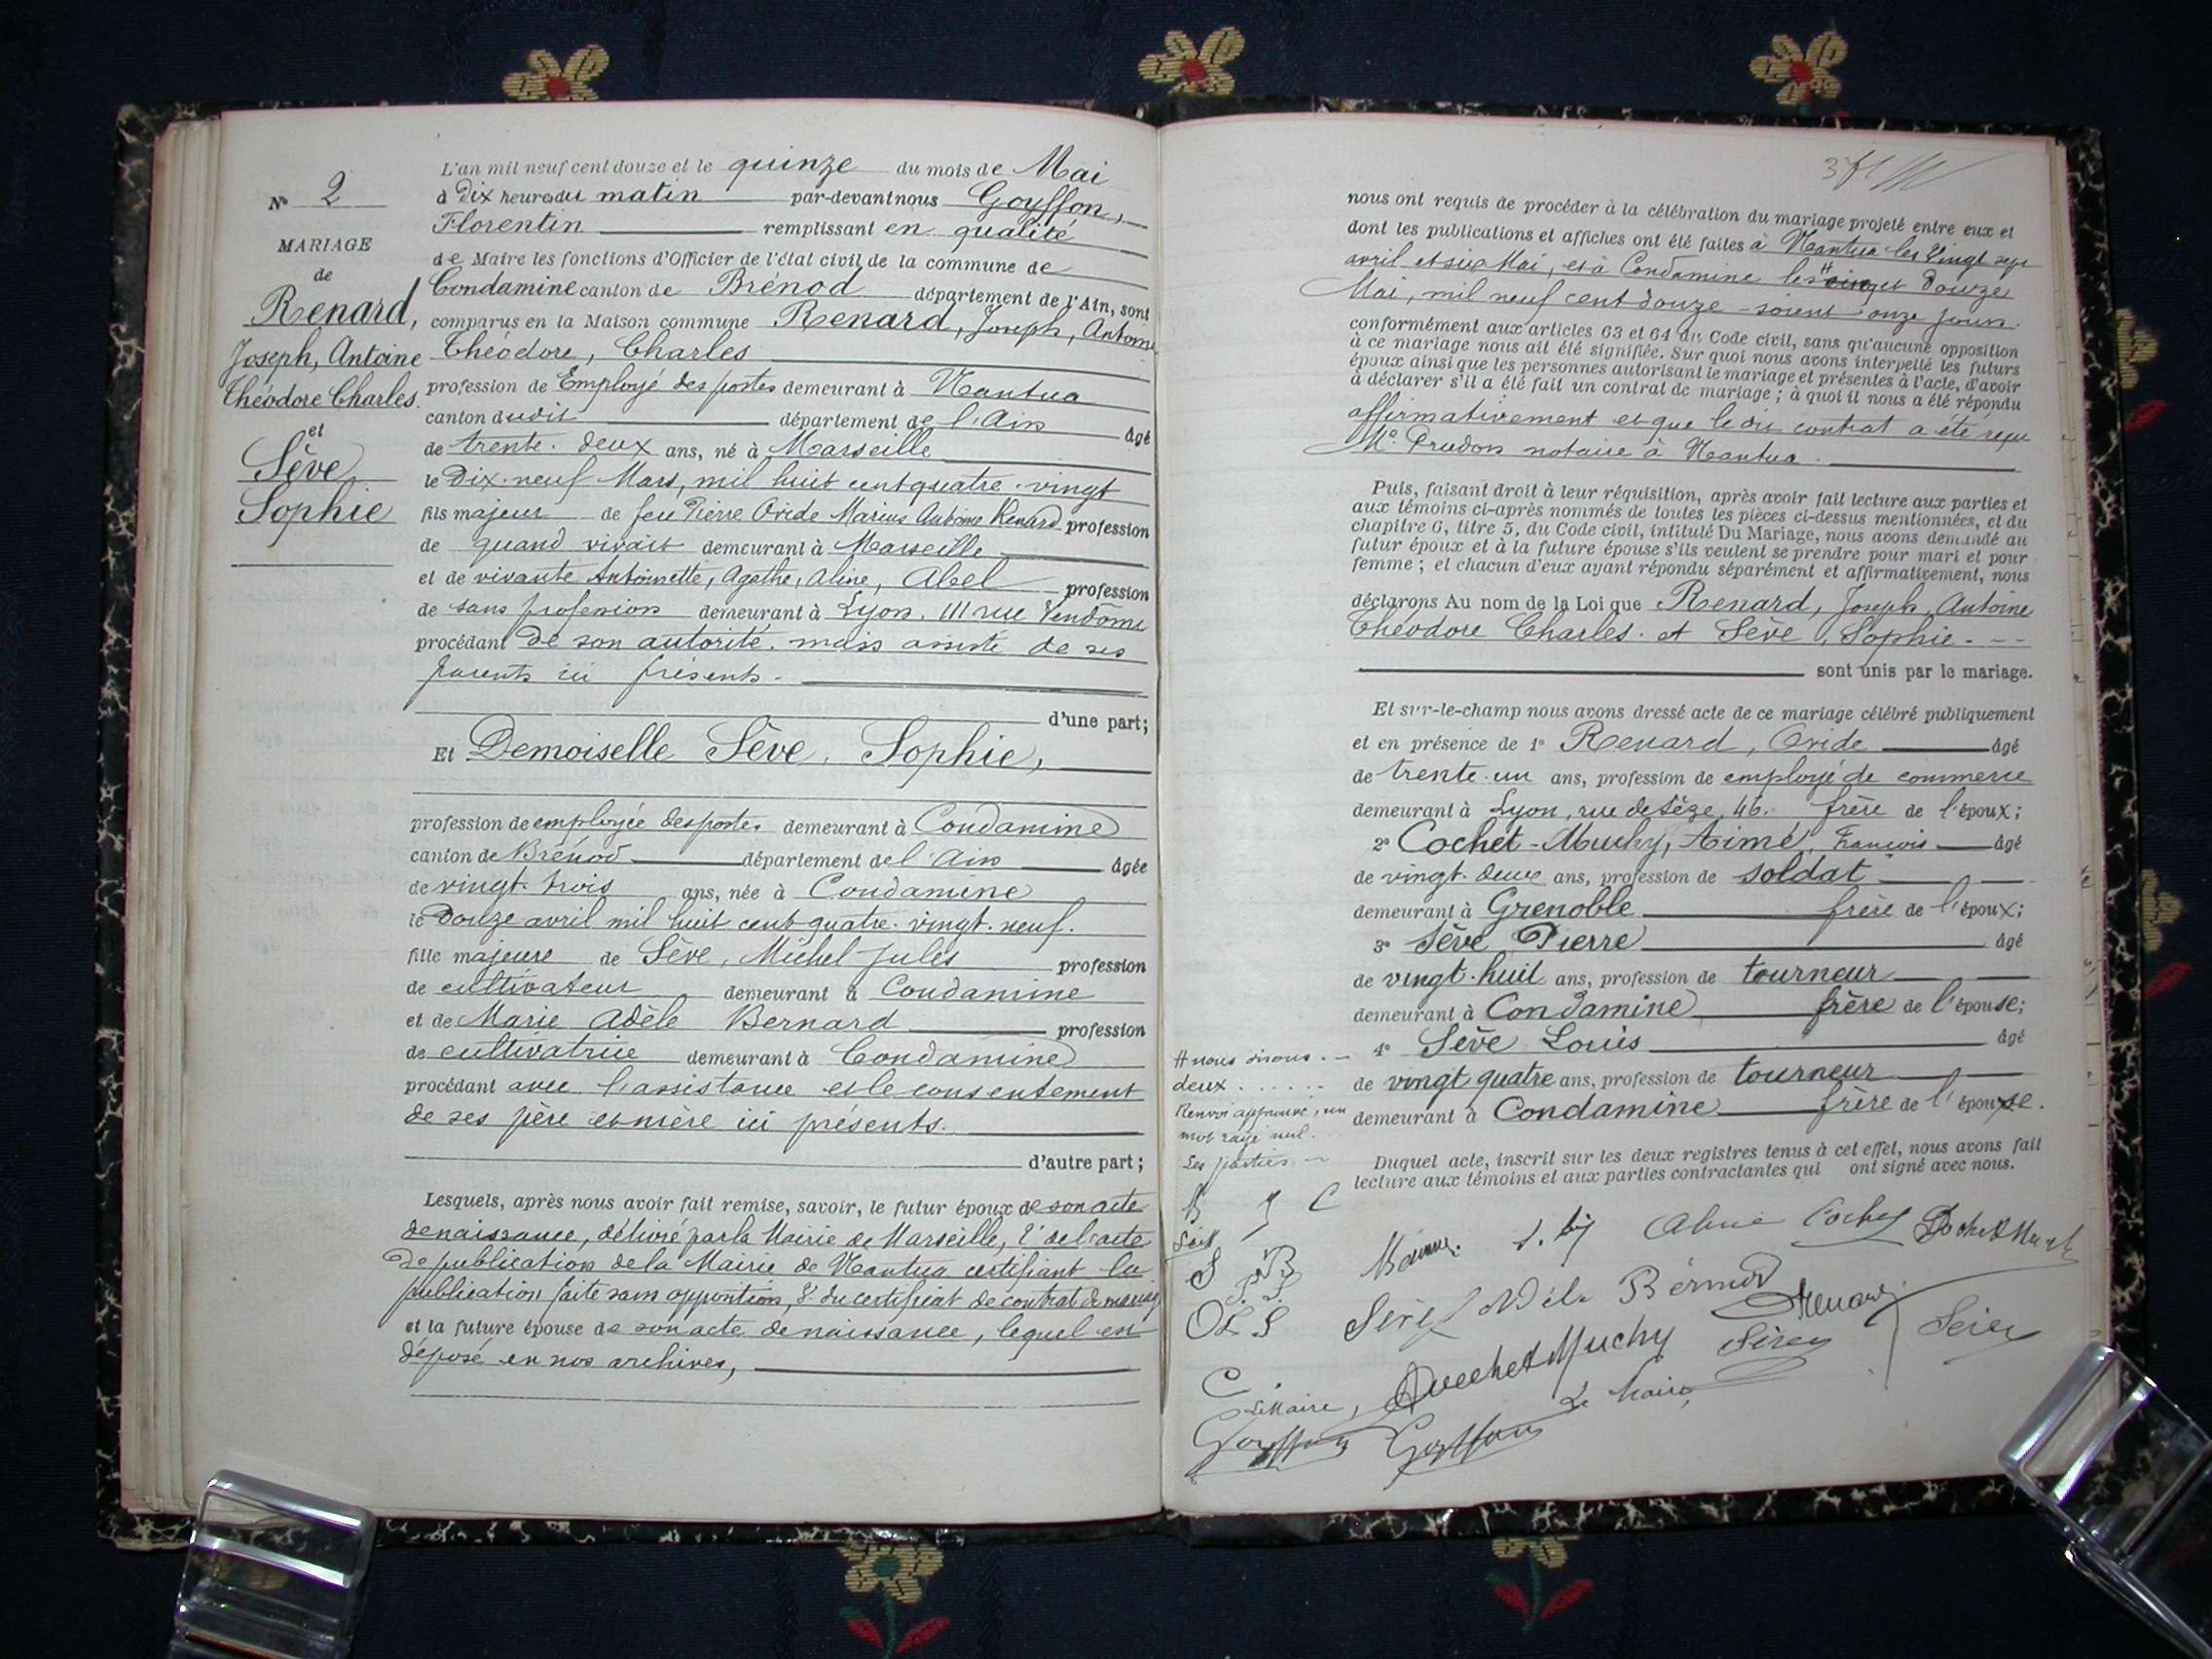 N° 2
MARIAGE
de
Renard,
Joseph, Antoine
Théodore Charles
et
Sève
Sophie
L'an mil neuf cent douze et le quinze du mois de Mai
à Dix heures du matin par-devant nous Goyffon,
Florentin remplissant en qualité
de Maire les fonctions d'Officier de l'état civil de la commune de
Condamine canton de Brénod département de l'Ain, sont
comparus en la Maison commune Renard, Joseph, Antoine
Théodore, Charles
profession de Employé des postes demeurant à Nantua
canton dudit département de l'Ain âgé
de trente-deux ans, né à Marseille
le Dix-neuf Mars, mil huit cent quatre-vingt
fils majeur de feu Pierre Ovide Marius Antoine Renard profession
de quand vivait demeurant à Marseille
et de vivante Antoinette, Agathe, Aline, Abel profession
de sans profession demeurant à Lyon, 111 rue Vendôme
procédant de son autorité, mais assisté de ses
parents ici présents.
d'une part;
Et Demoiselle Sève, Sophie,
profession de employée des postes demeurant à Condamine
canton de Brénod département de l'Ain âgée
de vingt-trois ans, née à Condamine
le Douze avril mil huit cent quatre-vingt-neuf.
fille majeure de Sève, Michel-Jules profession
de cultivateur demeurant à Condamine
et de Marie Adèle Bernard profession
de cultivatrice demeurant à Condamine
procédant avec l'assistance et le consentement
de ses père et mère ici présents.
d'autre part;
Lesquels, après nous avoir fait remise, savoir, le futur époux de son acte
de naissance, délivré par la Mairie de Marseille, 2° de l'acte
de publication de la Mairie de Nantua certifiant la
publication faite sans opposition, 3° du certificat de contrat de mariage
et la future épouse de son acte de naissance, lequel est
déposé en nos archives,
nous ont requis de procéder à la célébration du mariage projeté entre eux et
dont les publications et affiches ont été faites à Nantua les Vingt sept
avril et six Mai, et à Condamine les # cinq et douze
Mai, mil neuf cent douze soient onze jours.
conformément aux articles 63 et 64 du Code civil, sans qu'aucune opposition
à ce mariage nous ait été signifiée. Sur quoi nous avons interpellé les futurs
époux ainsi que les personnes autorisant le mariage et présentes à l'acte, d'avoir
à déclarer s'il a été fait un contrat de mariage ; à quoi il nous a été répondu
affirmativement et que le dit contrat a été reçu
Me. Prudon notaire à Nantua.
Puis, faisant droit à leur réquisition, après avoir fait lecture aux parties et
aux témoins ci-après nommés de toutes les pièces ci-dessus mentionnées, et du
chapitre 6, titre 5, du Code civil, intitulé Du Mariage, nous avons demandé au
futur époux et à la future épouse s'ils veulent se prendre pour mari et pour
femme ; et chacun d'eux ayant répondu séparément et affirmativement, nous
déclarons Au nom de la Loi que Renard, Joseph, Antoine
Théodore Charles. et Sève, Sophie.
sont unis par le mariage.
Et sur-le-champ nous avons dressé acte de ce mariage célébré publiquement
et en présence de 1° Renard, Ovide âgé
de trente-un ans, profession de employé de commerce
demeurant à Lyon, rue de Sèze, 46. frère de l'époux;
2° Cochet-Muchy, Aimé, François âgé
de vingt-deux ans, profession de soldat
demeurant à Grenoble frère de l'époux;
3° Sève Pierre âgé
de vingt-huit ans, profession de tourneur
demeurant à Condamine frère de l'épouse;
4° Sève Louis âgé
de vingt quatre ans, profession de tourneur
demeurant à Condamine frère de l'épouse.
Duquel acte, inscrit sur les deux registres tenus à cet effet, nous avons fait
lecture aux témoins et aux parties contractantes qui ont signé avec nous.
# nous disons.
deux
Renvoi approuvé, un
mot rayé nul.
Les parties
S B
P. S.
O L S
C
Le Maire,
Goyffon
Aline Cochet
Sève Adèle Bernard
Renard
Cochet Muchy
Le Maire,
Goyffon